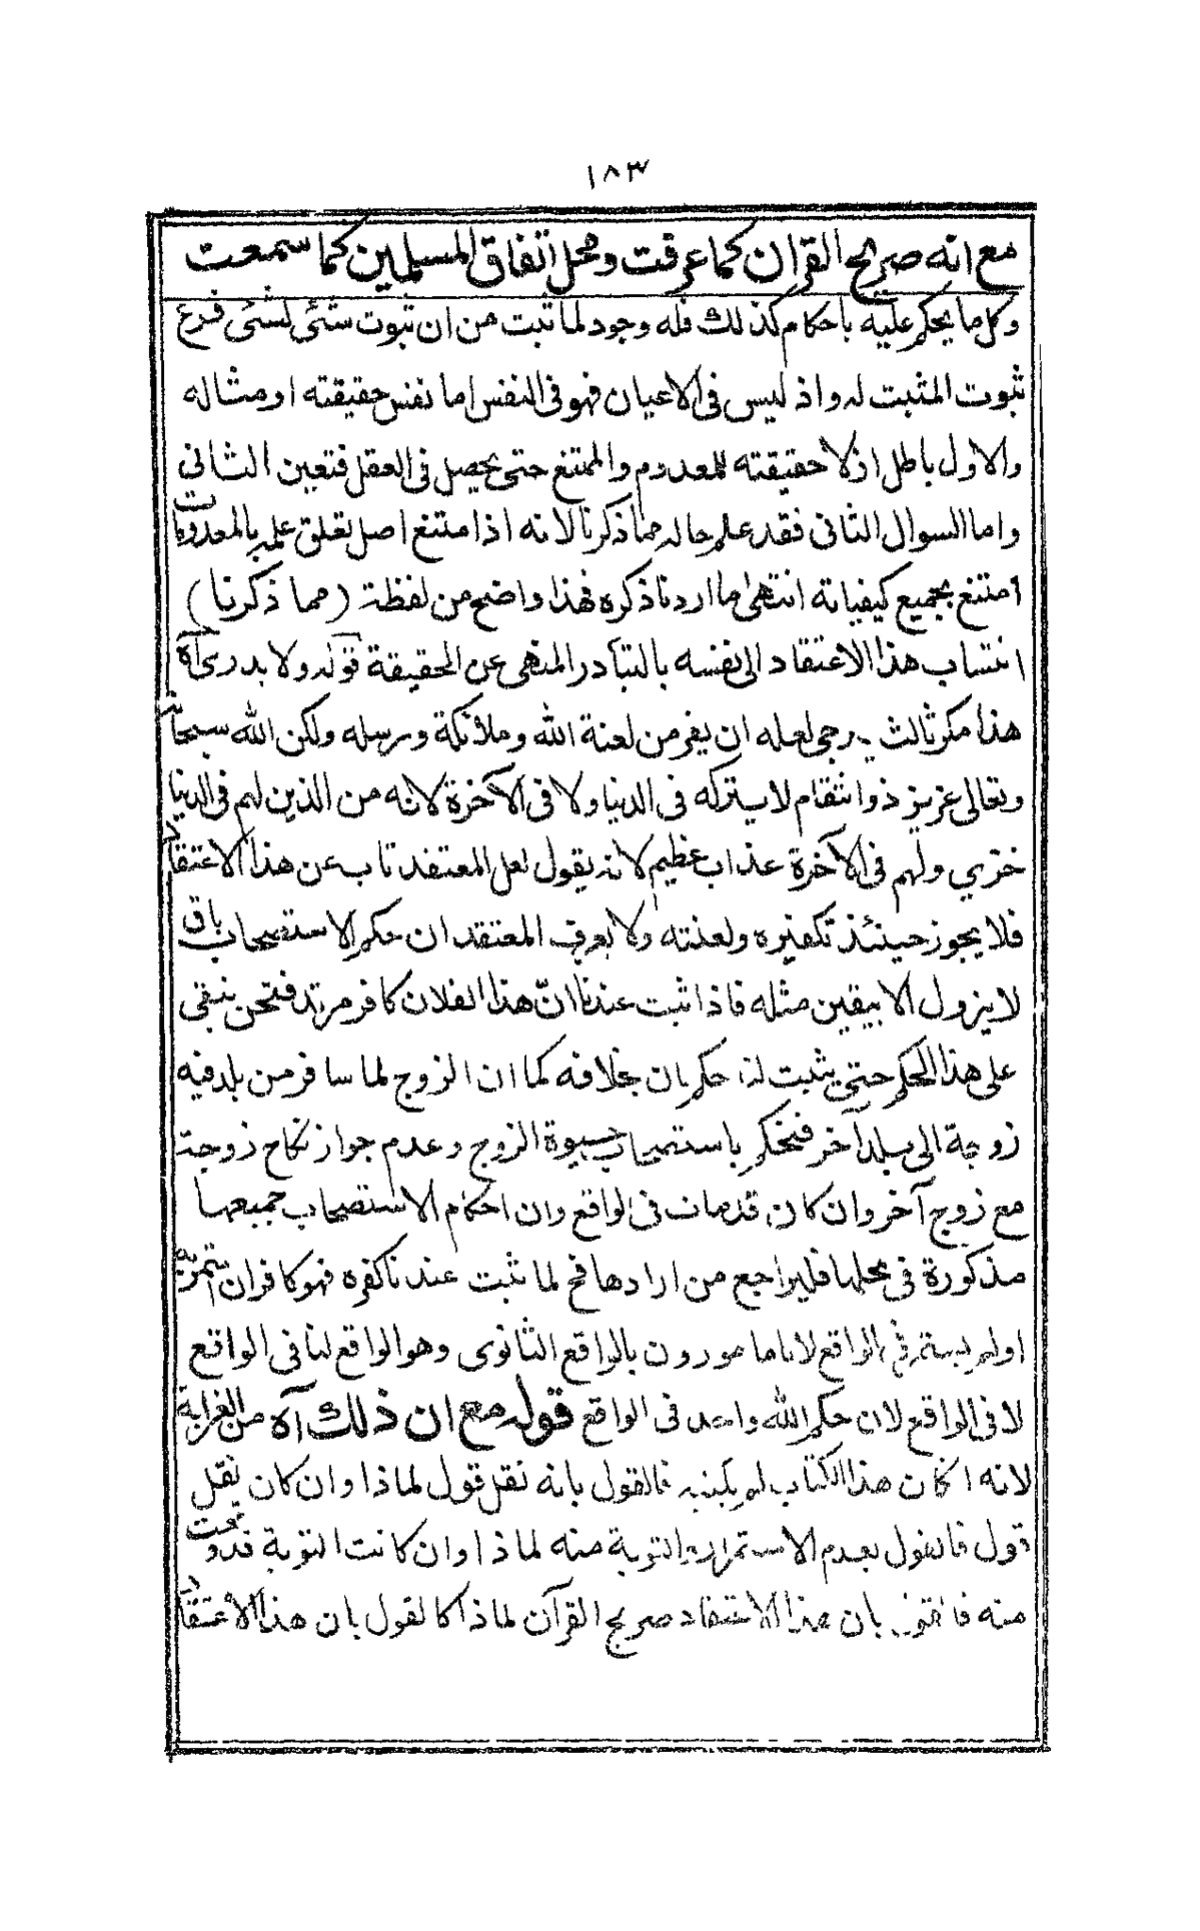 ١٨٣
مع انه صريح القران كما عرفت ومحل اتفاق المسلمين كما سمعت
وكل ما يحكم عليه باحكام كذلك فله وجود لما ثبت من ان ثبوت شئى لشئى فرع
ثبوت المثبت له واذ ليس فى الاعيان فهو فى النفس اما نفس حقيقته او مثاله
والاول باطل اذ لا حقيقته للمعدوم والممتنع حتى يحصل فى العقل فتعين الثانى
واما السوال الثانى فقد علم حاله مما ذكرنا لانه اذا متنع اصل تعلق علمه بالمعدومات
امتنع بجميع كيفياته انتهى ما اردنا ذكره فهذا واضح من لفظة (مما ذكرنا)
انتساب هذا الاعتقاد الى نفسه بالتبادر المنهى عن الحقيقة قوله ولا بدرى آه
هذا مكر ثالث يرجى لعله ان يفر من لعنة الله وملائكة ورسله ولكن الله سبحانه
وتعالى عزيز ذو انتقام لا يتركه فى الدنيا ولا فى الآخرة لانه من الذين لهم فى الدنيا
خزي ولهم فى الآخرة عذاب عظيم لانه يقول لعل المعتقد تاب عن هذا الاعتقاد
فلا يجوز حينئذ تكفيره ولعنته ولا يعرف المعتقد ان حكم الاستصحاب باق
لا يزول الا بيقين مثله فاذا ثبت عندنا انّ هذا الفلان كافر مرتد فنحن نبقى
على هذا الحكم حتى يثبت لنا حكم بان خلافه كما ان الزوج لما سافر من بلد فيه
زوجة الى بلد آخر فنحكم باستصحاب حيوة الزوج وعدم جواز نكاح زوجة
مع زوج آخر وان كان قد مات فى الواقع وان احكام الاستصحاب جميعها
مذكورة فى محلها فليراجع من ارادها فح لما ثبت عندنا كفره فهو كافر ان استمر به
اولم يستمر فى الواقع لانا مامورون بالواقع الثانوى وهو الواقع لنا فى الواقع
لا فى الواقع لان حكم الله واحد فى الواقع قوله مع ان ذلك آه من الغرابة
لانه اكان هذا الكتاب لم يكتبه فالقول بانه نقل قول لماذا وان كان نقل
قول فالقول بعدم الاستمرار والتوبة منه لماذا وان كانت التوبة قد وقعت
منه فالقول بان هذا الاعتقاد صريح القرآن لماذا كالقول بان هذا الاعتقاد